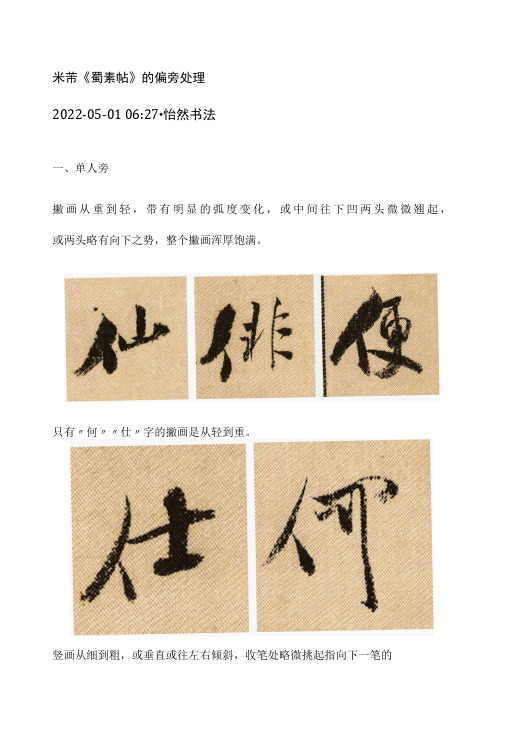 米芾《蜀素帖》的偏旁处理
2022-05-01 06:27•怡然书法
一、单人旁
撇画从重到轻，带有明显的弧度变化，或中间往下凹两头微微翘起，
或两头略有向下之势，整个撇画浑厚饱满。
仙 俳 便
只有〃何〃〃仕〃字的撇画是从轻到重。
仕 何
竖画从细到粗，或垂直或往左右倾斜，收笔处略微挑起指向下一笔的